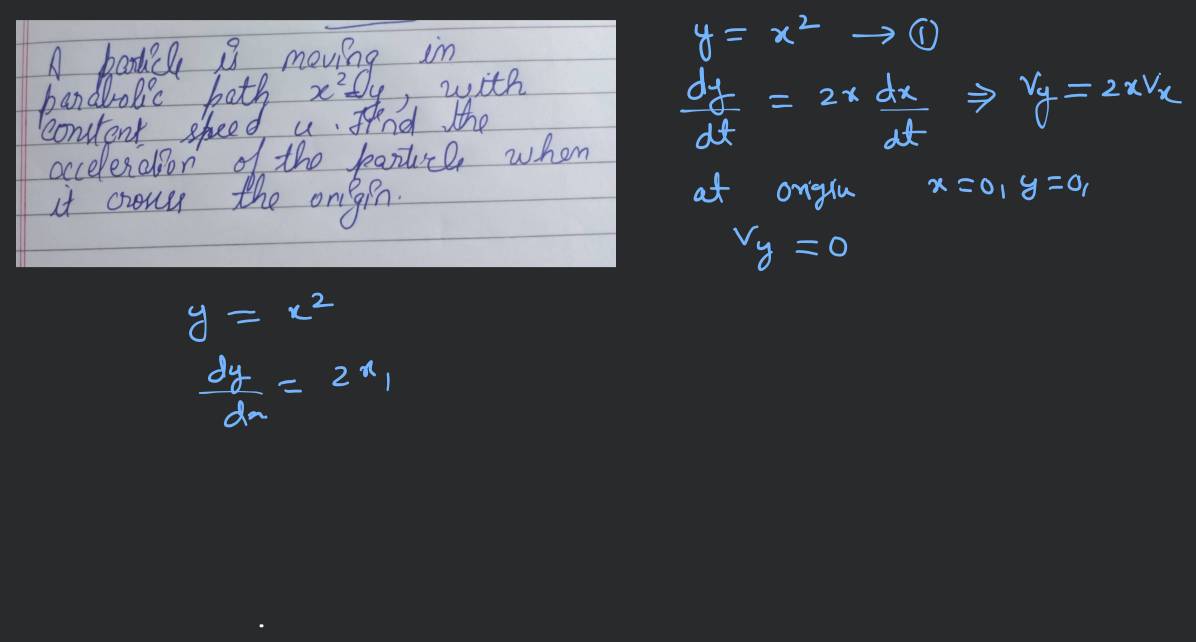 A particle is moving in
parabolic path x²=y, with
constant speed u. Find the
acceleration of the particle when
it crosses the origin.
y = x² → ①
dy/dt = 2x dx/dt ⇒ Vy = 2xVx
at origin x=0, y=0,
Vy = 0
y = x²
dy/dx = 2x,